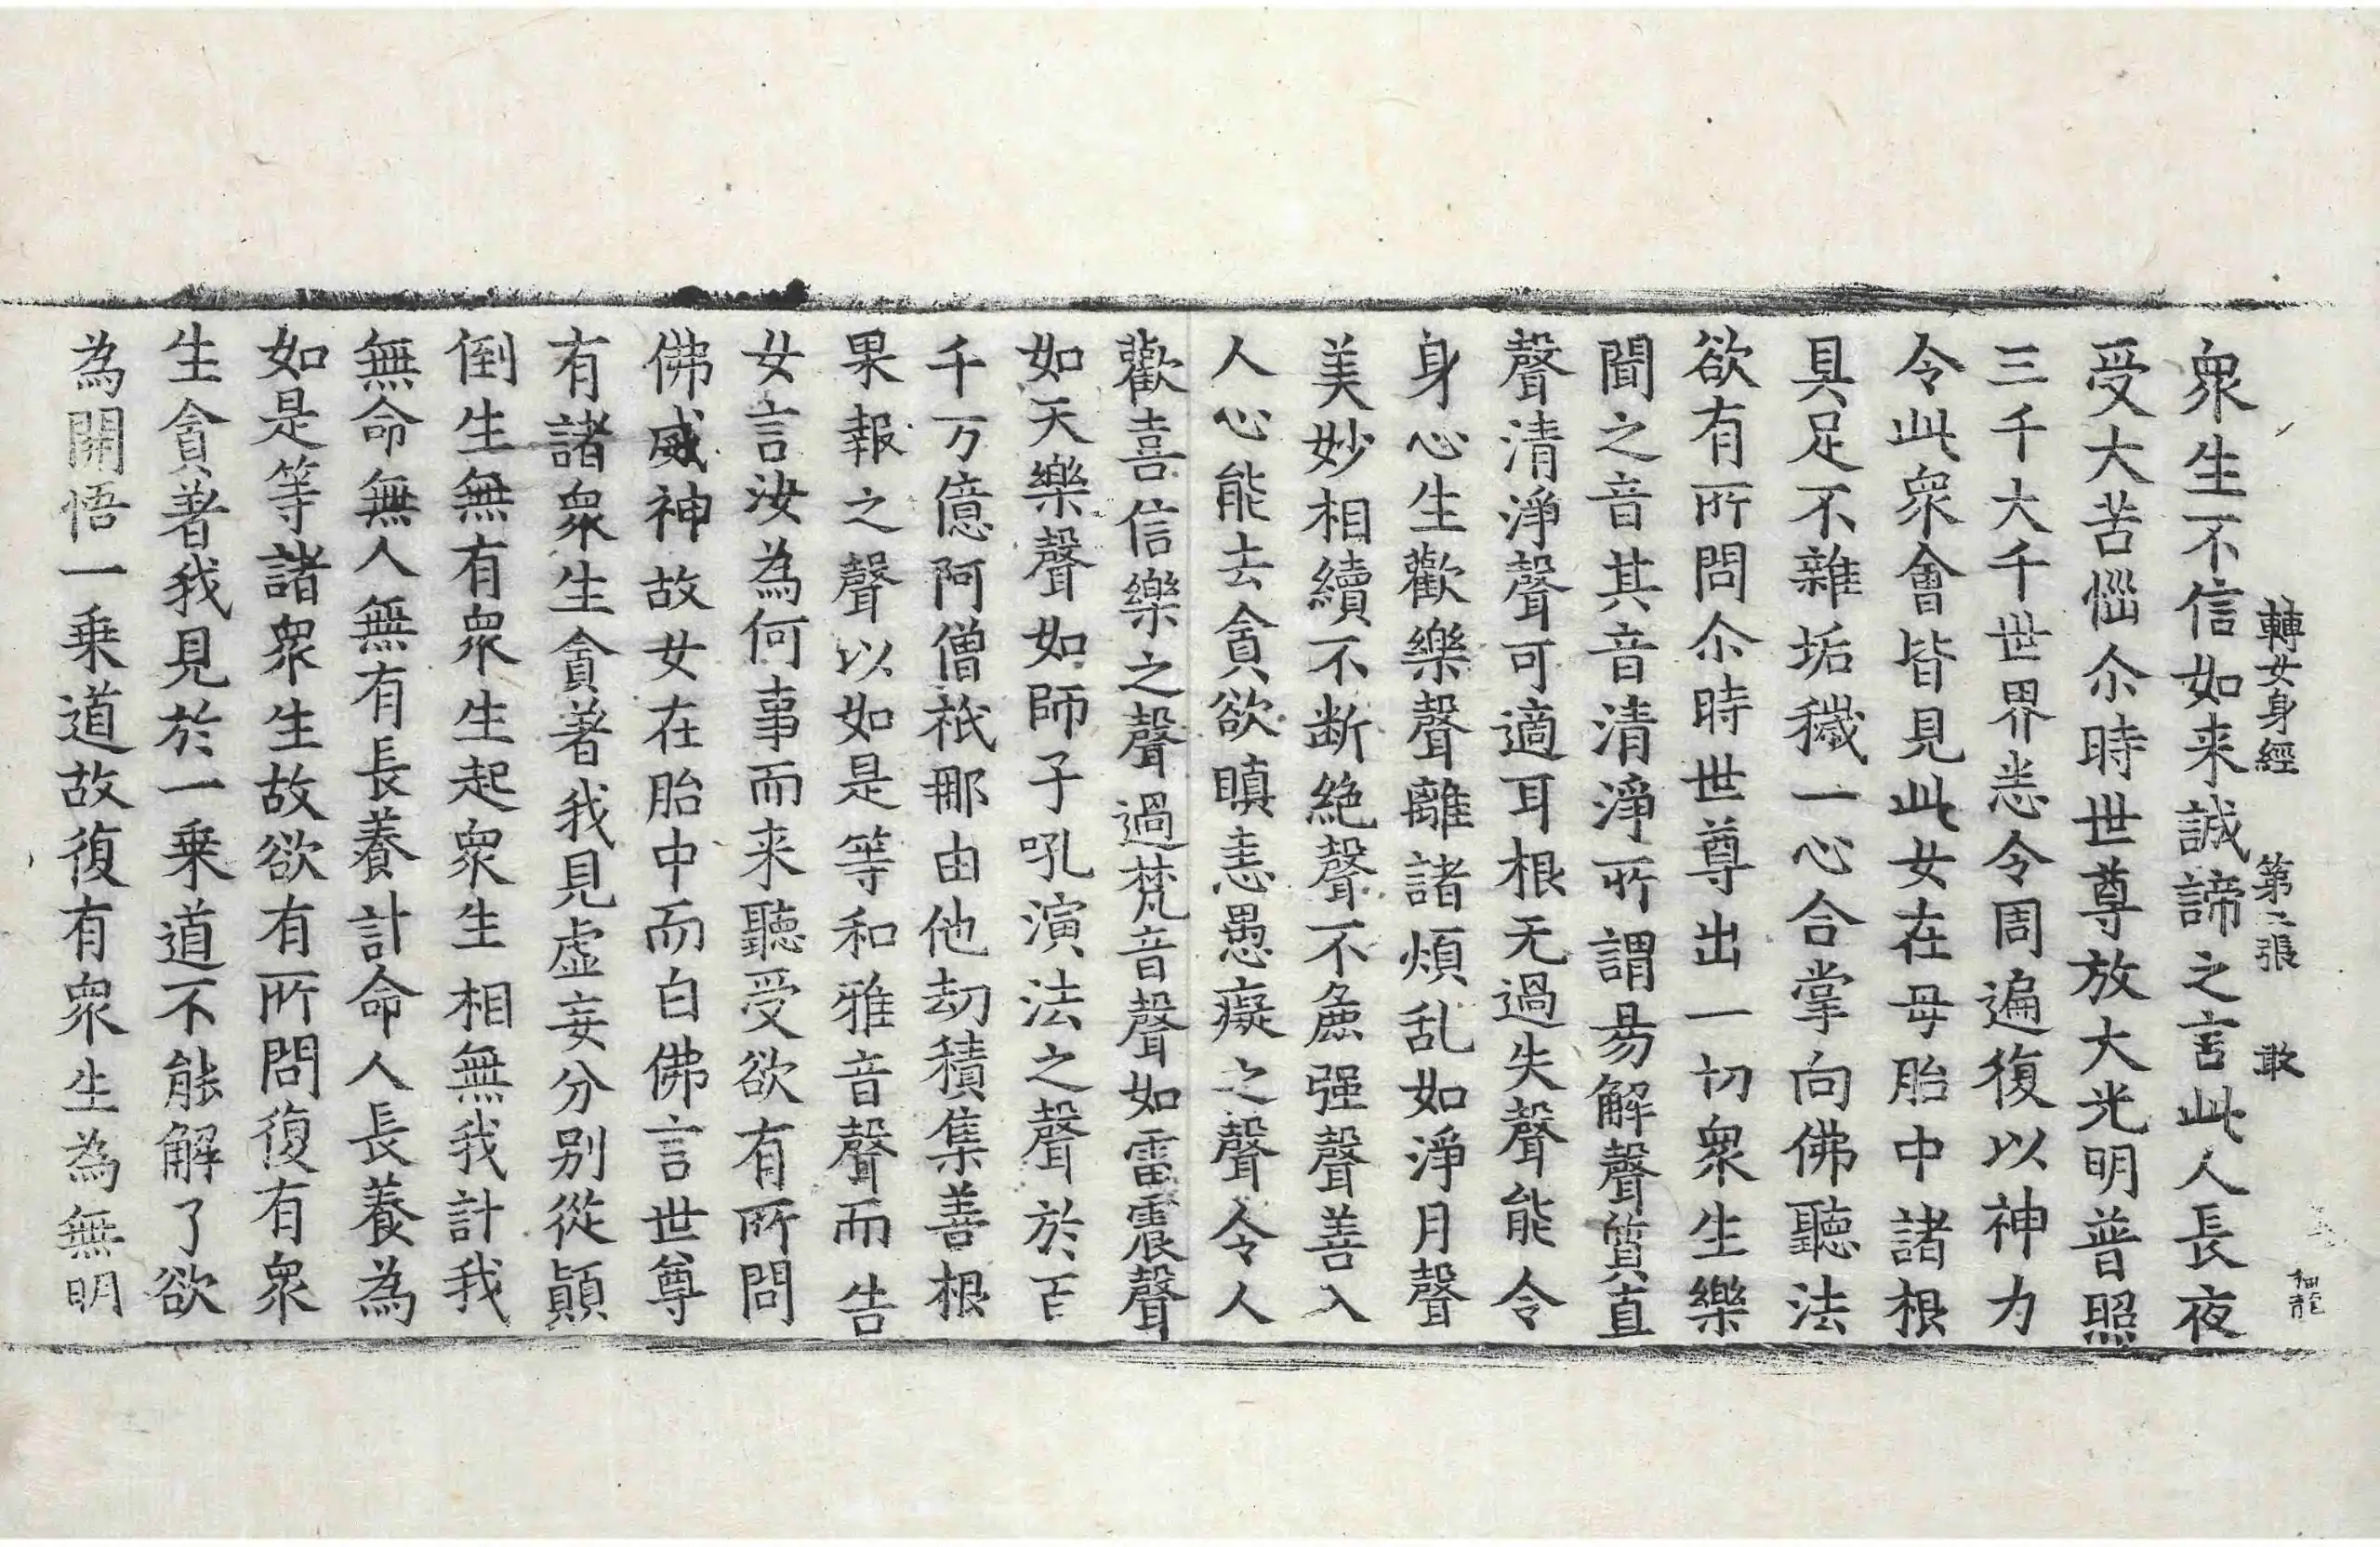 轉女身經 第二張 敢
衆生不信如来誠諦之言此人長夜
受大苦惱尒時世尊放大光明普照
三千大千世界悉令周遍復以神力
令此衆會皆見此女在母胎中諸根
具足不雜垢穢一心合掌向佛聽法
欲有所問尒時世尊出一切衆生樂
聞之音其音清淨所謂易解聲質直
聲清淨聲可適耳根无過失聲能令
身心生歡樂聲離諸煩乱如淨月聲
美妙相續不断絶聲不麁强聲善入
人心能去貪欲瞋恚愚癡之聲令人
歡喜信樂之聲過梵音聲如雷震聲
如天樂聲如師子吼演法之聲於百
千万億阿僧祇那由他劫積集善根
果報之聲以如是等和雅音聲而告
女言汝為何事而来聽受欲有所問
佛威神故女在胎中而白佛言世尊
有諸衆生貪著我見虛妄分别從顛
倒生無有衆生起衆生相無我計我
無命無人無有長養計命人長養為
如是等諸衆生故欲有所問復有衆
生貪著我見於一乗道不能解了欲
為開悟一乗道故復有衆生為無明